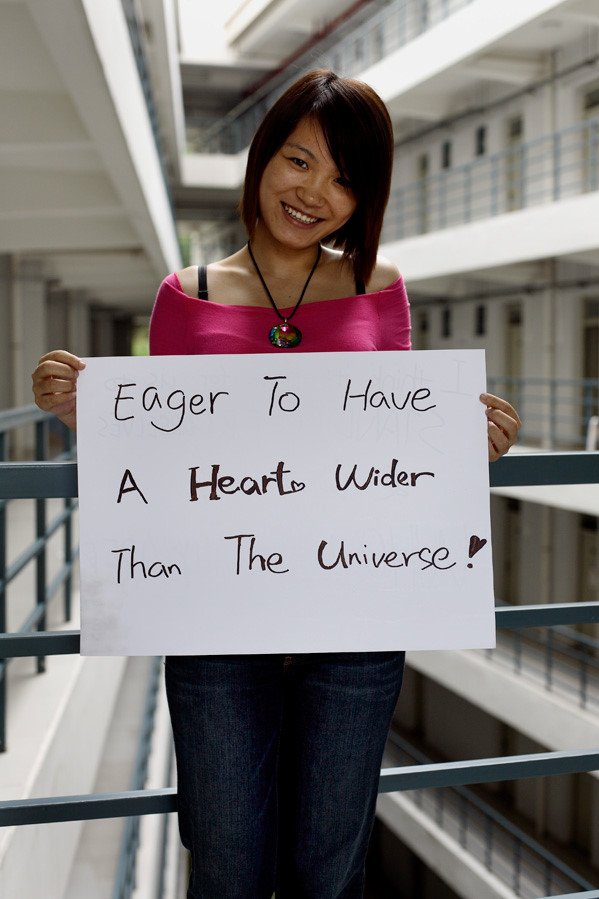 Eager To Have
A Heart Wider
Than The Universe!